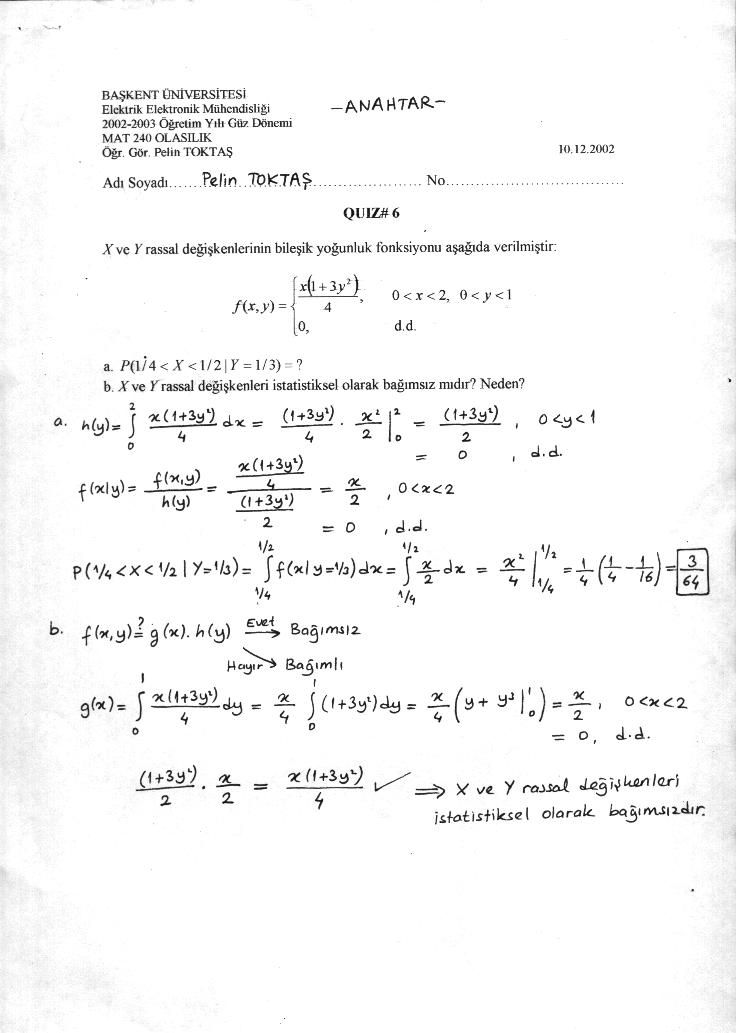 BAŞKENT ÜNİVERSİTESİ
Elektrik Elektronik Mühendisliği
-ANAHTAR-
2002-2003 Öğretim Yılı Güz Dönemi
MAT 240 OLASILIK
Öğr. Gör. Pelin TOKTAŞ
10.12.2002
Adı Soyadı.......Pelin TOKTAŞ...................... No..................................
QUIZ# 6
X ve Y rassal değişkenlerinin bileşik yoğunluk fonksiyonu aşağıda verilmiştir:
f(x,y) = { x(1+3y²)/4, 0<x<2, 0<y<1
0, d.d.
a. P(1/4 < X < 1/2 | Y = 1/3) = ?
b. X ve Y rassal değişkenleri istatistiksel olarak bağımsız mıdır? Neden?
a. h(y) = ∫₀² x(1+3y²)/4 dx = (1+3y²)/4 · x²/2 |₀² = (1+3y²)/2 , 0<y<1
= 0 , d.d.
f(x|y) = f(x,y)/h(y) = (x(1+3y²)/4)/((1+3y²)/2) = x/2 , 0<x<2
= 0 , d.d.
P(1/4 < X < 1/2 | Y=1/3) = ∫_{1/4}^{1/2} f(x|y=1/3)dx = ∫_{1/4}^{1/2} x/2 dx = x²/4 |_{1/4}^{1/2} = 1/4 (1/4 - 1/16) = 3/64
b. f(x,y) ≟ g(x). h(y) Evet → Bağımsız
Hayır → Bağımlı
g(x) = ∫₀¹ x(1+3y²)/4 dy = x/4 ∫₀¹ (1+3y²)dy = x/4 (y + y³ |₀¹) = x/2 , 0<x<2
= 0, d.d.
(1+3y²)/2 . x/2 = x(1+3y²)/4 ✓ ⇒ X ve Y rassal değişkenleri
istatistiksel olarak bağımsızdır.